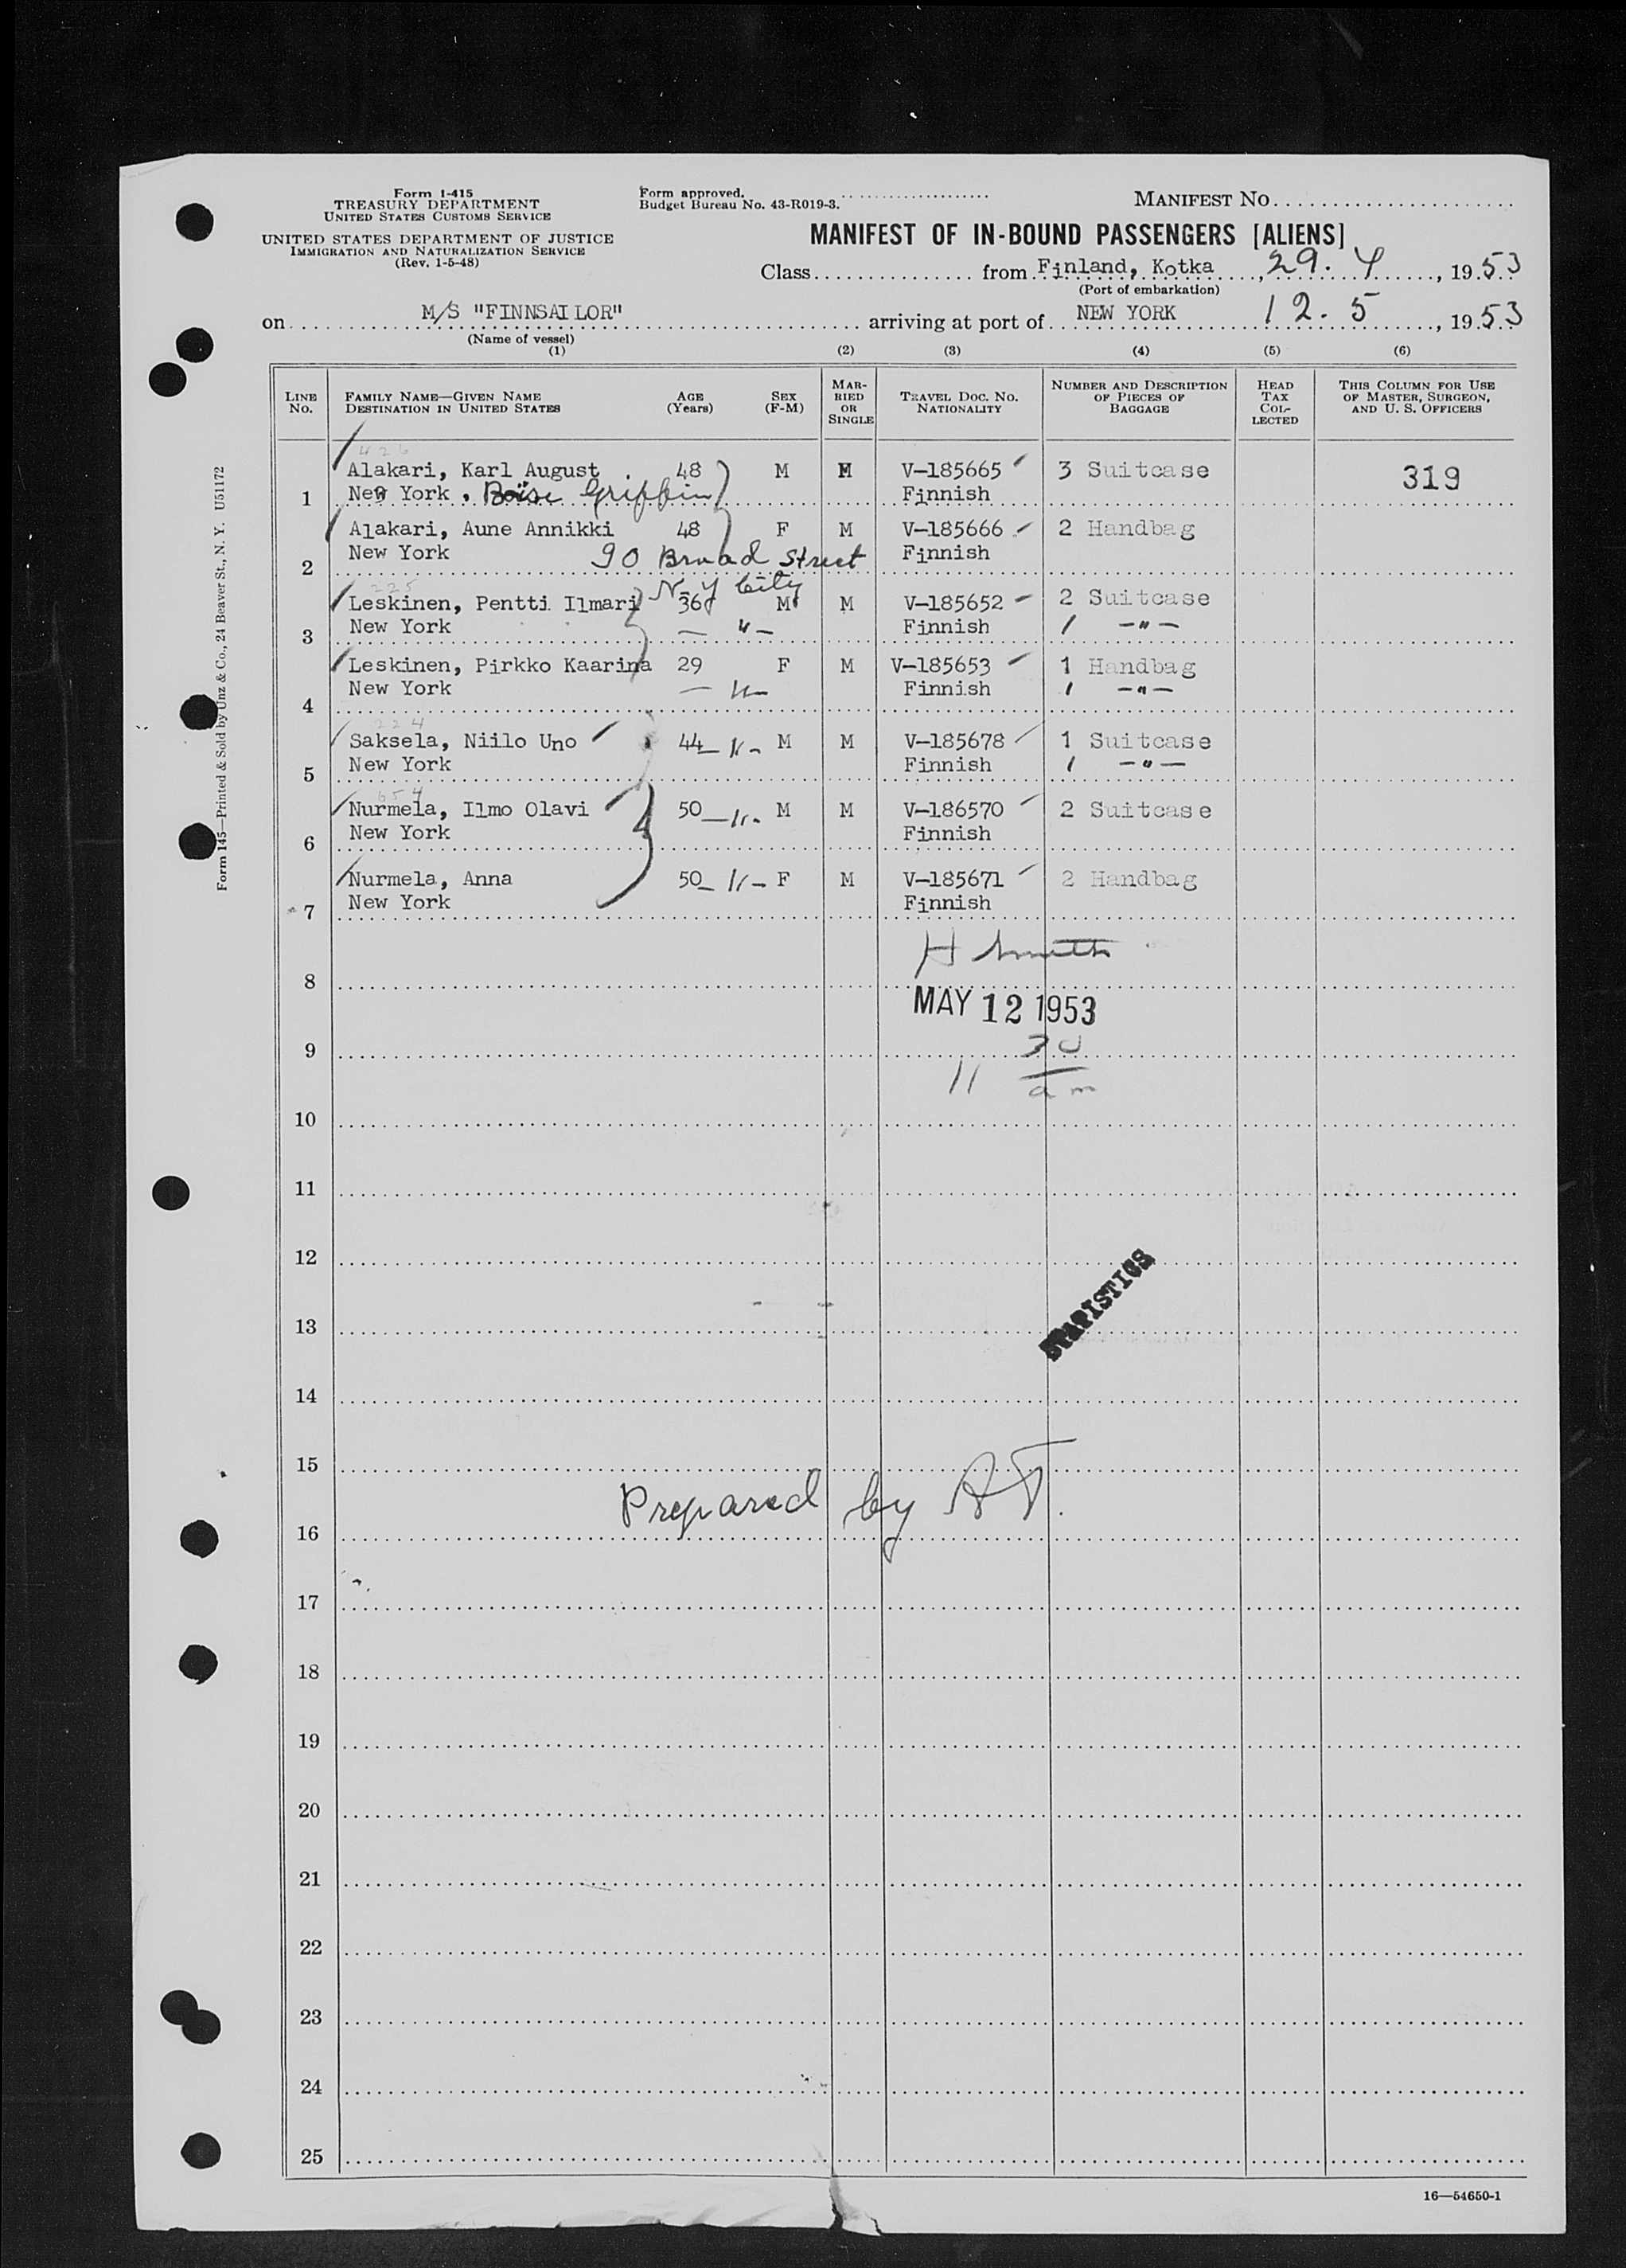 Form I-415
TREASURY DEPARTMENT
UNITED STATES CUSTOMS SERVICE
UNITED STATES DEPARTMENT OF JUSTICE
IMMIGRATION AND NATURALIZATION SERVICE
(Rev. 1-5-48)
Form approved.
Budget Bureau No. 43-R019-3.
MANIFEST NO.
MANIFEST OF IN-BOUND PASSENGERS [ALIENS]
Class from Finland, Kotka, 29. 4, 1953
(Port of embarkation)
on M/S "FINNSAILOR" arriving at port of NEW YORK 12. 5, 1953
(Name of vessel)
(1) (2) (3) (4) (5) (6)
LINE NO. FAMILY NAME—GIVEN NAME DESTINATION IN UNITED STATES AGE (Years) SEX (F-M) MARRIED OR SINGLE TRAVEL DOC. NO. NATIONALITY NUMBER AND DESCRIPTION OF PIECES OF BAGGAGE HEAD TAX COLLECTED THIS COLUMN FOR USE OF MASTER, SURGEON, AND U. S. OFFICERS
426
Alakari, Karl August 48 M M V-185665 3 Suitcase 319
1 New York, Boise Griffin Finnish
Alakari, Aune Annikki 48 F M V-185666 2 Handbag
2 New York 90 Broad Street Finnish
225 N-Y City
Leskinen, Pentti Ilmari 36 M M V-185652 2 Suitcase
3 New York — " — Finnish 1 -"-
Leskinen, Pirkko Kaarina 29 F M V-185653 1 Handbag
4 New York — " — Finnish 1 -"-
224
Saksela, Niilo Uno 44 -"- M M V-185678 1 Suitcase
5 New York Finnish 1 -"-
654
Nurmela, Ilmo Olavi 50 -"- M M V-186570 2 Suitcase
6 New York Finnish
Nurmela, Anna 50 -"- F M V-185671 2 Handbag
7 New York Finnish
H Smith
8
MAY 12 1953
9
11 30 am
10
11
12
STATISTICS
13
14
15
Prepared by AT.
16
17
18
19
20
21
22
23
24
25
16—54650-1
Form 145—Printed & Sold by Unz & Co., 24 Beaver St., N. Y. U51172